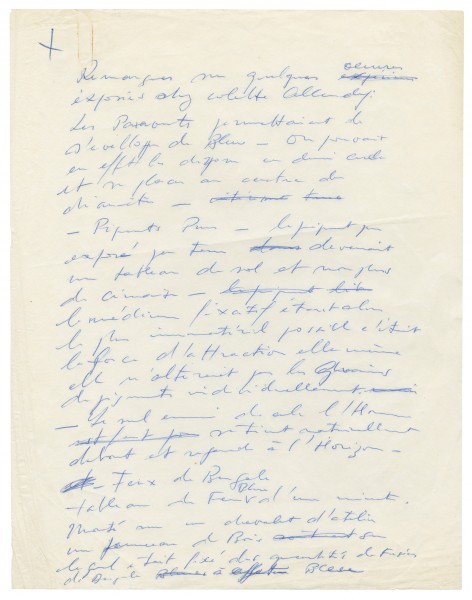 Remarques sur quelques oeuvres
exposées chez Colette Allendy.
Les Paravents permettaient de
s'envelopper de Bleu - On pouvait
en effet les disposer en demi cercle
et se placer au centre du
diamètre -
- Pigments Purs - le pigment pur
exposé par terre devenait
un tableau de sol et non plus
de cimaise -
le médium fixatif étant alors
le plus immatériel possible c'était
la force d'attraction elle même
elle n'altérait pas les grains
de pigments individuellement
- Le seul ennui de cela l'Homme
se tient naturellement
debout et regarde à l'Horizon -
- Feux de Bengale
- tableau de Feu bleu d'une minute.
Monté sur un chevalet d'atelier
un panneau de Bois sur
lequel était fixé des quantités de fusées
de Bengale à Bleue